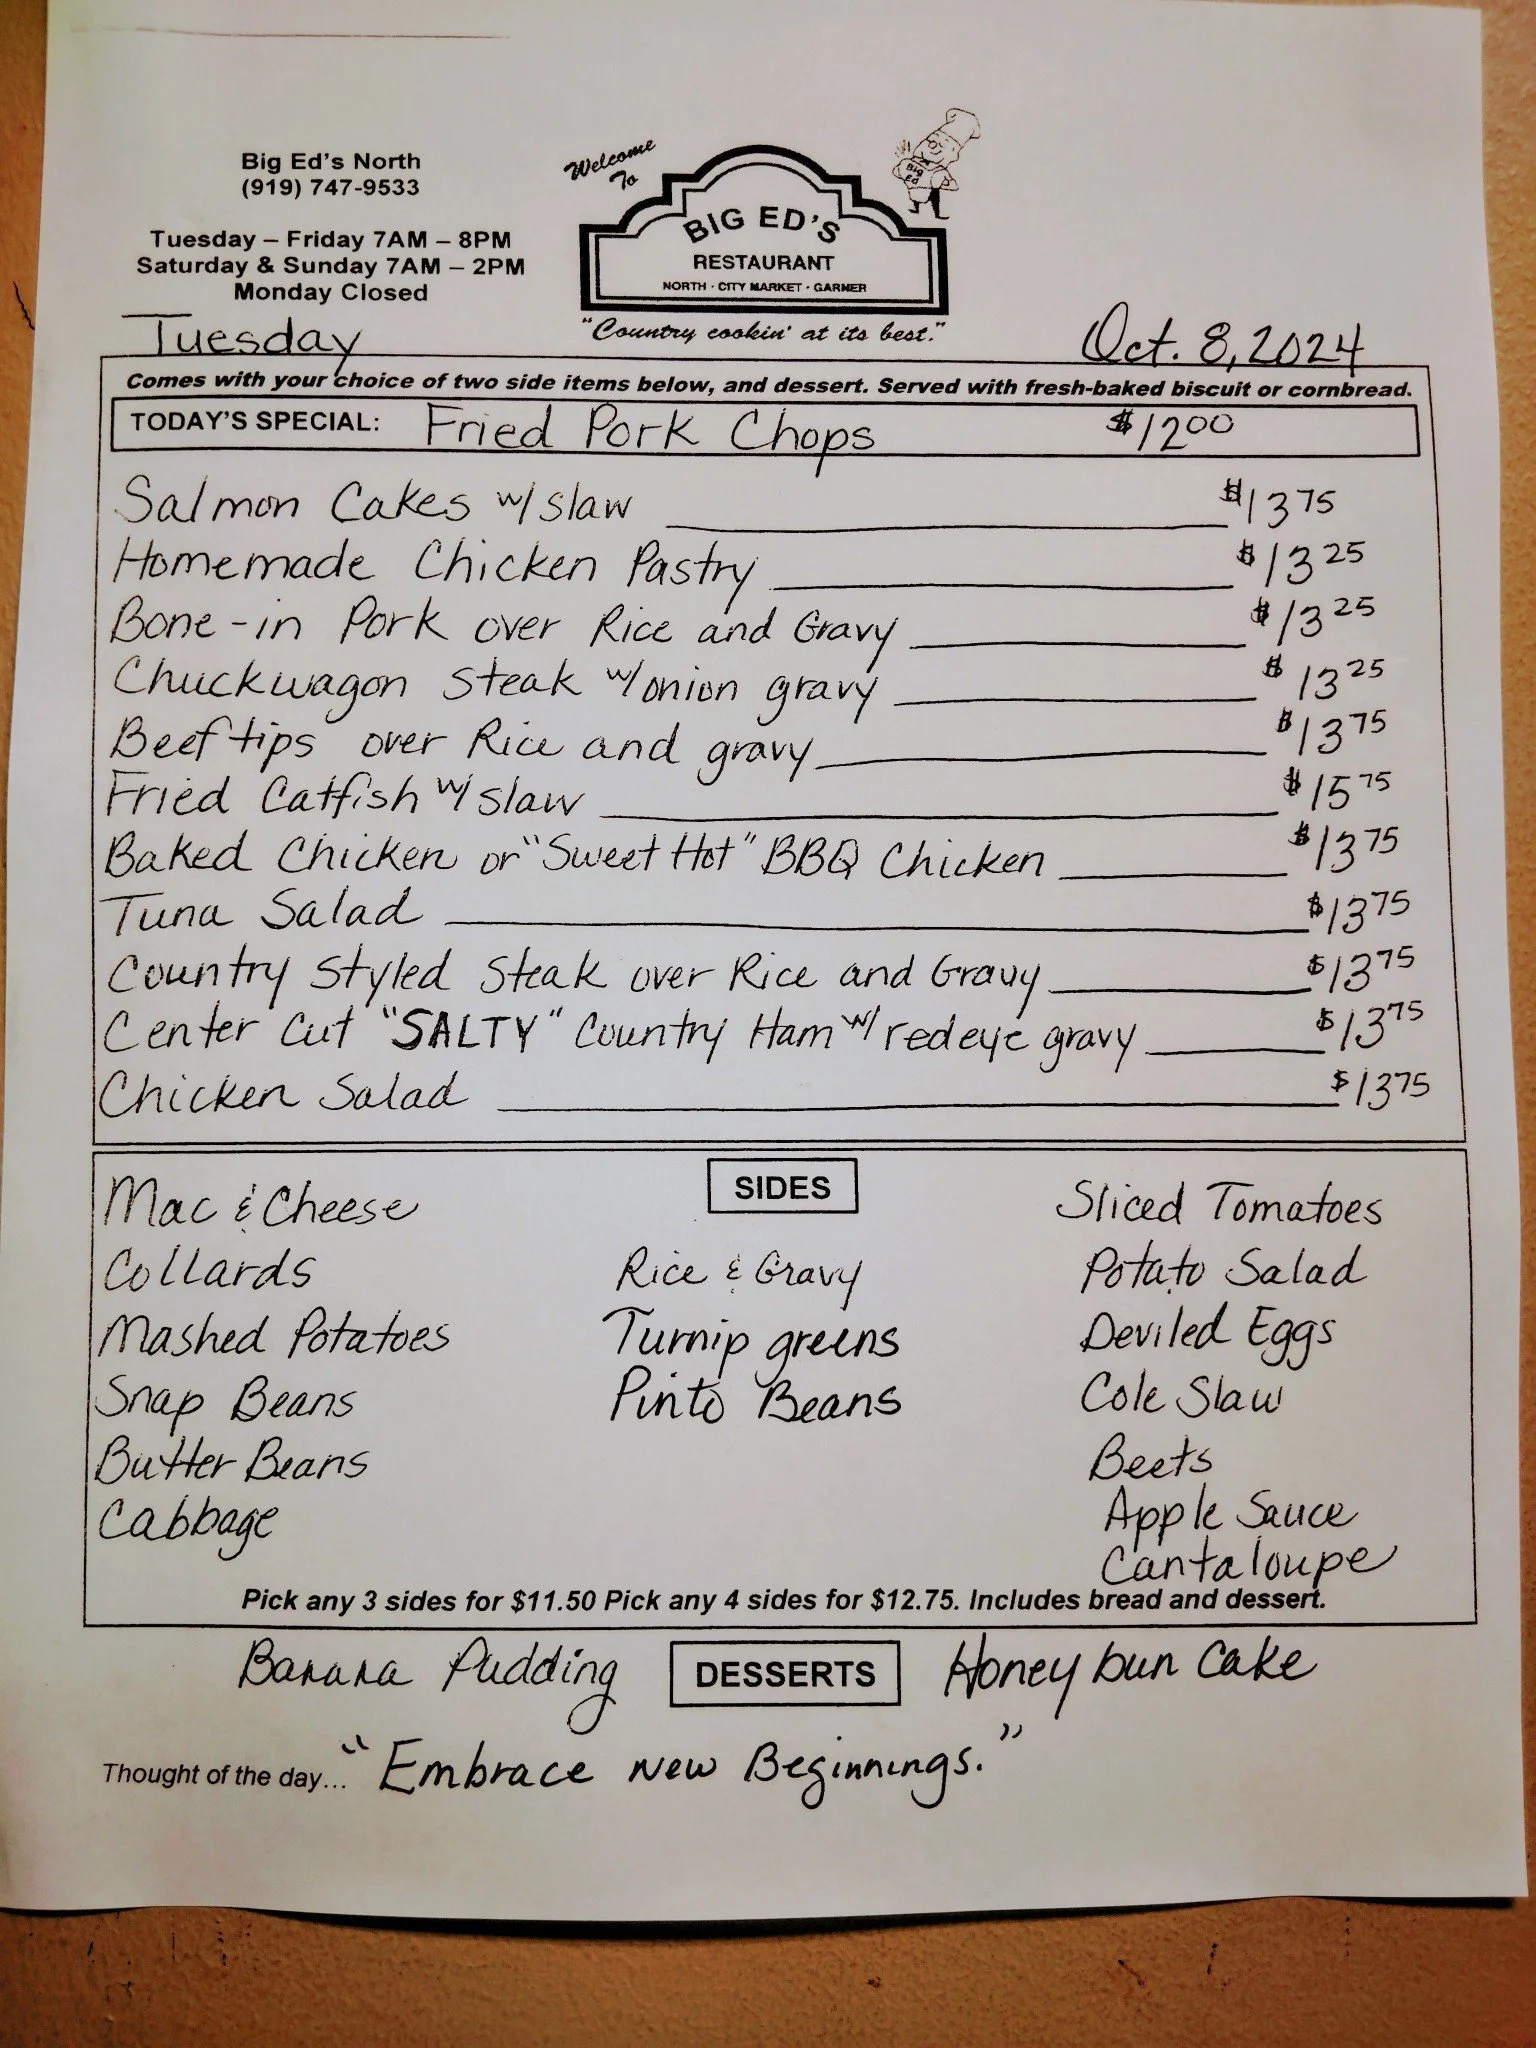 Big Ed's North
(919) 747-9533
Tuesday – Friday 7AM – 8PM
Saturday & Sunday 7AM – 2PM
Monday Closed
Welcome
To
BIG ED'S
RESTAURANT
NORTH · CITY MARKET · GARNER
"Country cookin' at its best."
Big
Ed
Tuesday
Oct. 8, 2024
Comes with your choice of two side items below, and dessert. Served with fresh-baked biscuit or cornbread.
TODAY'S SPECIAL: Fried Pork Chops $12 00
Salmon Cakes w/ slaw $13 75
Homemade Chicken Pastry $13 25
Bone-in Pork over Rice and Gravy $13 25
Chuckwagon steak w/ onion gravy $13 25
Beef tips over Rice and gravy $13 75
Fried Catfish w/ slaw $15 75
Baked Chicken or "Sweet Hot" BBQ Chicken $13 75
Tuna Salad $13 75
Country Styled Steak over Rice and Gravy $13 75
Center Cut "SALTY" Country Ham w/ redeye gravy $13 75
Chicken Salad $13 75
SIDES
Mac & Cheese
Collards
Mashed Potatoes
Snap Beans
Butter Beans
Cabbage
Rice & Gravy
Turnip greens
Pinto Beans
Sliced Tomatoes
Potato Salad
Deviled Eggs
Cole Slaw
Beets
Apple Sauce
Cantaloupe
Pick any 3 sides for $11.50 Pick any 4 sides for $12.75. Includes bread and dessert.
Banana Pudding DESSERTS Honey bun Cake
Thought of the day... "Embrace New Beginnings."